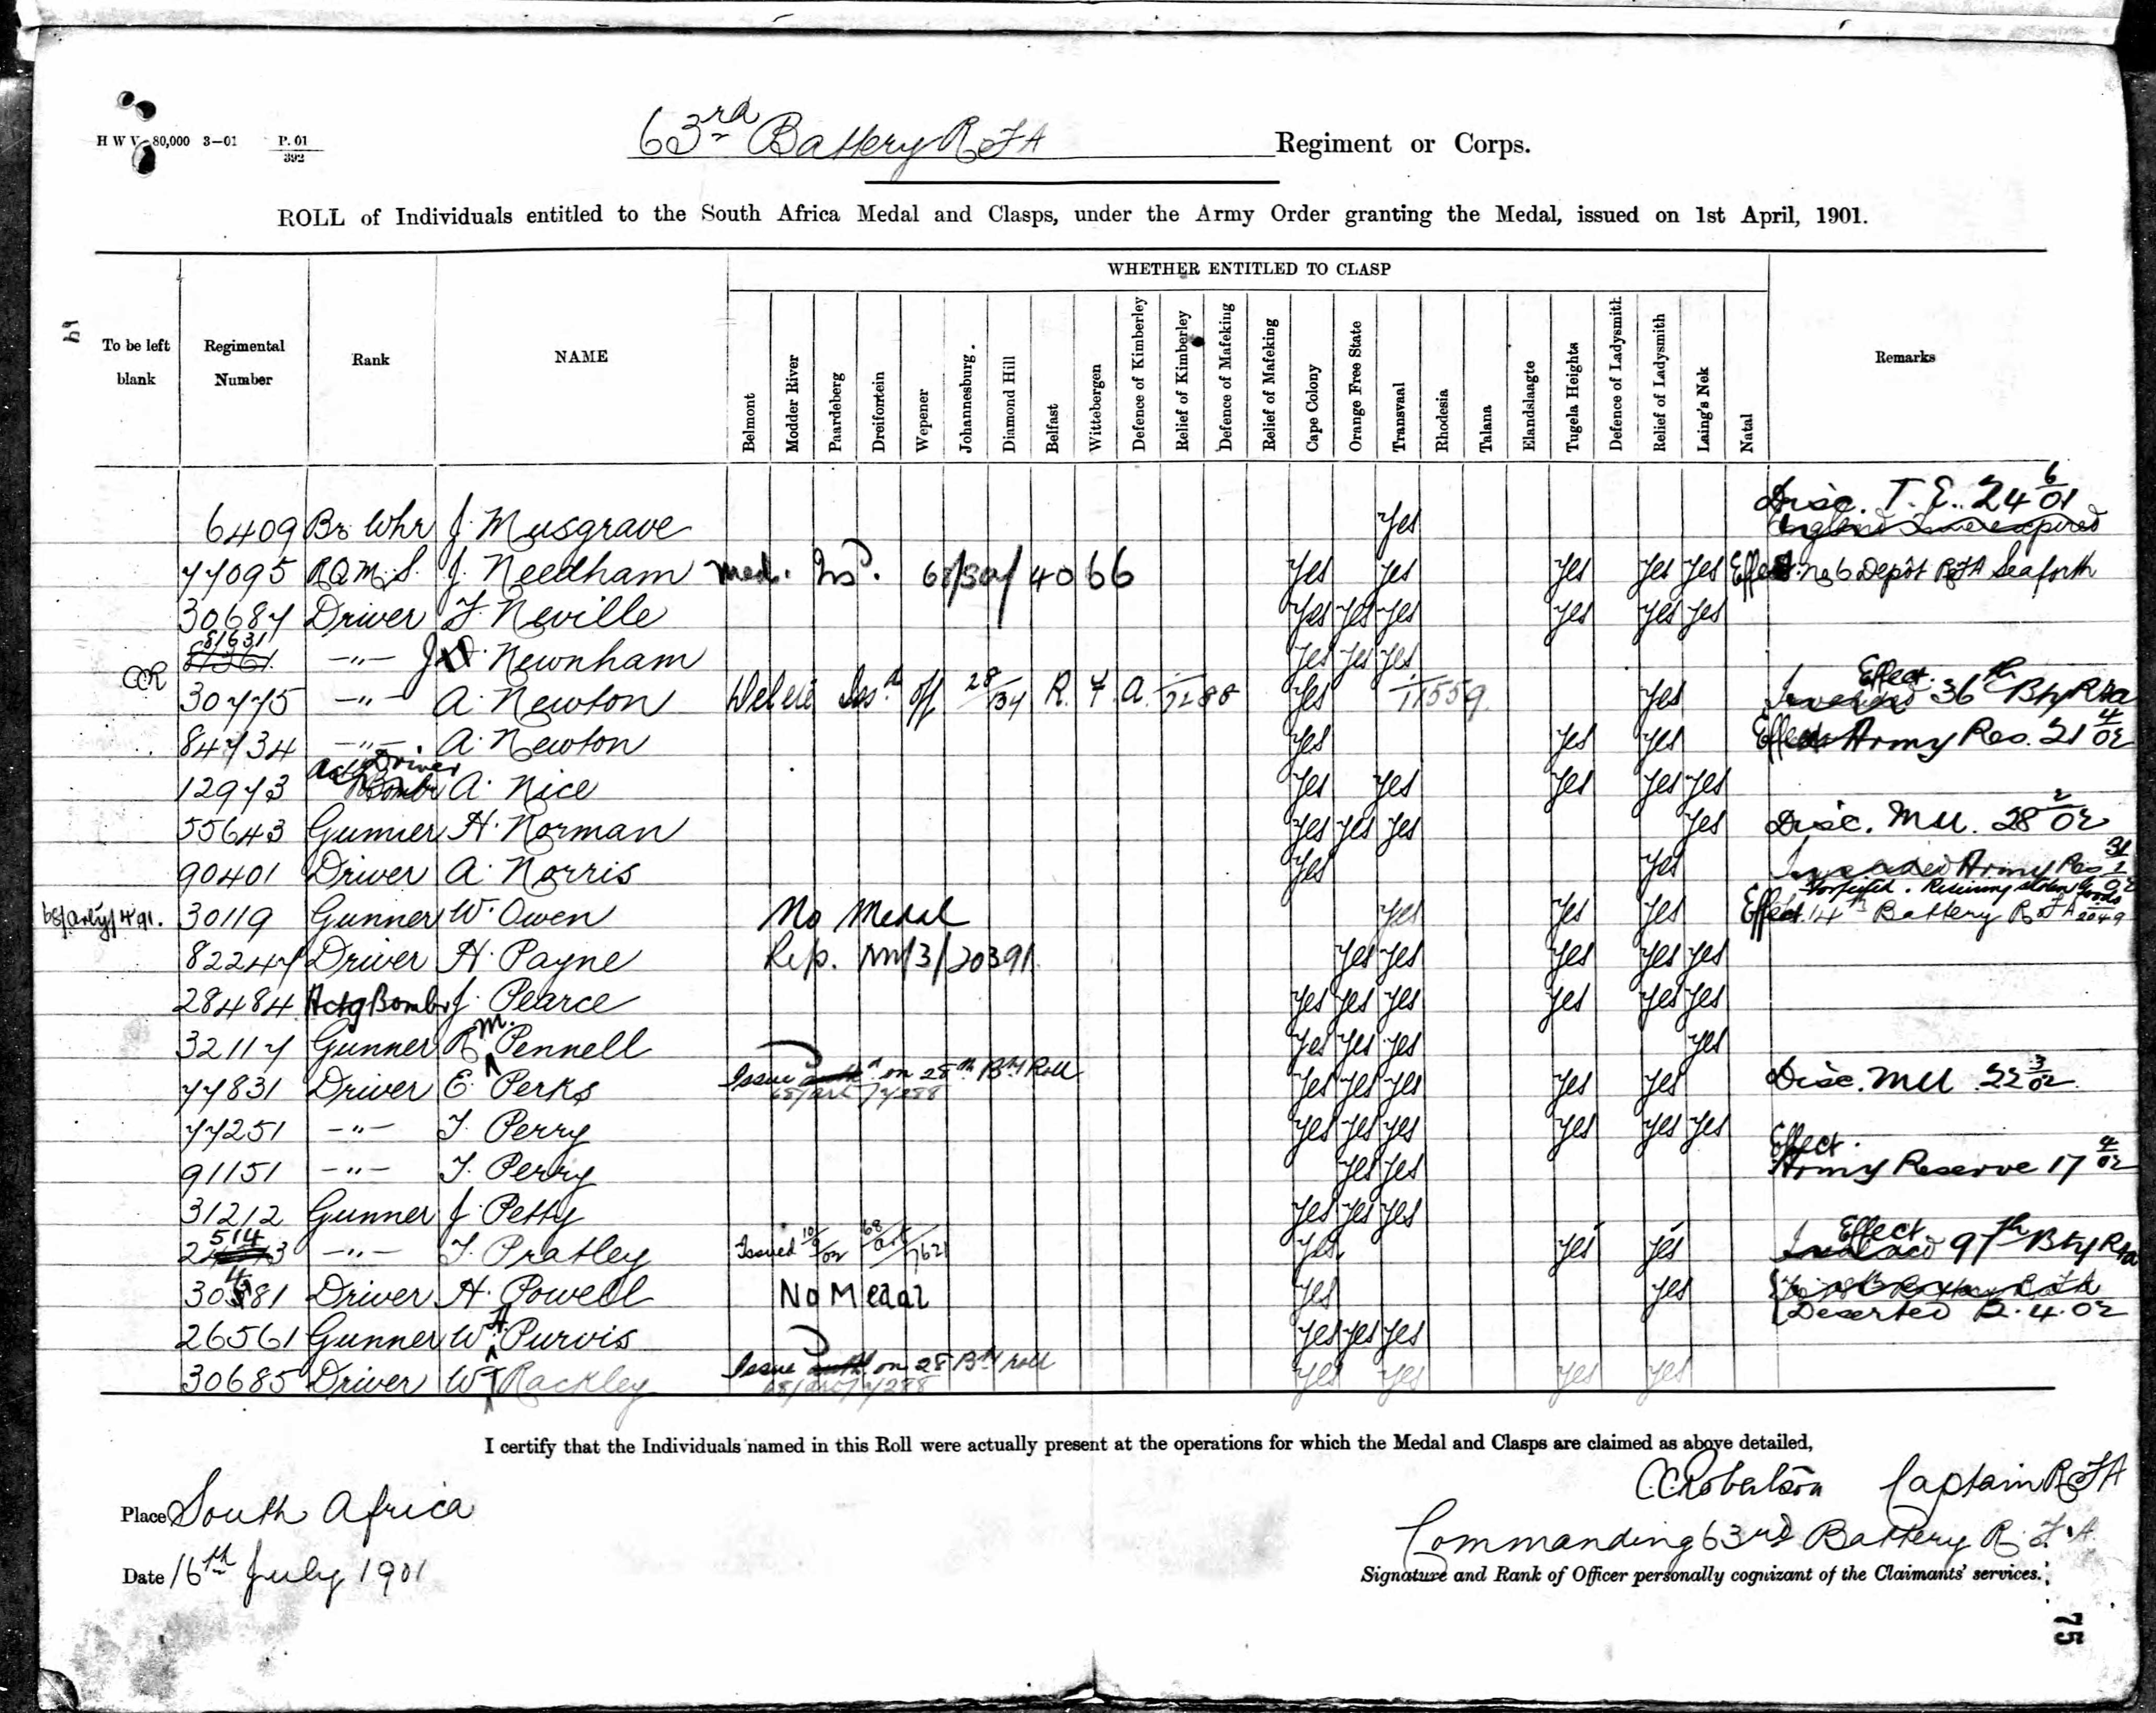 H W V 80,000 3—01 P. 01
392
63rd Battery RFA Regiment or Corps.
ROLL of Individuals entitled to the South Africa Medal and Clasps, under the Army Order granting the Medal, issued on 1st April, 1901.
WHETHER ENTITLED TO CLASP
To be left blank Regimental Number Rank NAME Belmont Modder River Paardeberg Dreifontein Wepener Johannesburg. Diamond Hill Belfast Wittebergen Defence of Kimberley Relief of Kimberley Defence of Mafeking Relief of Mafeking Cape Colony Orange Free State Transvaal Rhodesia Talana Elandslaagte Tugela Heights Defence of Ladysmith Relief of Ladysmith Laing's Nek Natal Remarks
6409 Br Whr J. Musgrave Yes Disc. T. E. 24 6/01
77095 RQMS. J. Needham Med. 68/Say/4066 Yes Yes Yes Yes Yes Effect. No 6 Depôt RFA Seaforth
30687 Driver F. Neville Yes Yes Yes Yes Yes Yes
81631 —"— J. Newnham Yes Yes Yes
CCR 30775 —"— A. Newton Delete off 28/134 R. F. A. 11559 Yes Yes Effect. 36th Bty RFA
84734 —"— A. Newton Yes Yes Yes Effect Army Res. 21 4/02
12973 Driver A. Nice Yes Yes Yes Yes Yes
55643 Gunner H. Norman Yes Yes Yes Yes Disc. MU. 28 2/02
90401 Driver A. Norris Yes Yes Army Res 31 1/02
30119 Gunner W. Owen No Medal Yes Yes Yes Forfeited. Effect. 14th Battery RFA
82247 Driver H. Payne Rep. NM/3/20391 Yes Yes Yes Yes Yes
28484 Actg Bombr J. Pearce Yes Yes Yes Yes Yes Yes
32117 Gunner R M. Pennell Yes Yes Yes Yes
77831 Driver E. Perks Issue on 28th Bty Roll Yes Yes Yes Yes Yes Disc. MU 22 3/02
68/Art/7288
77251 —"— T. Perry Yes Yes Yes Yes Yes Yes
91151 —"— T. Perry Yes Yes Effect. Army Reserve 17 4/02
31212 Gunner J. Petty Yes Yes Yes
514 —"— T. Pratley Issued 10/9/02 68/Art/7621 Yes Yes Yes Effect 9th Bty RFA
30481 Driver H. Powell No Medal Yes Yes
Deserted 2.4.02
26561 Gunner W. A. Purvis Yes Yes Yes
30685 Driver W T Rackley Issue on 28 Bty roll Yes Yes Yes Yes
68/Art/7288
I certify that the Individuals named in this Roll were actually present at the operations for which the Medal and Clasps are claimed as above detailed,
C.C.Robertson Captain RFA
Place South Africa
Commanding 63rd Battery R.F.A.
Date 16th July 1901
Signature and Rank of Officer personally cognizant of the Claimants' services.
75